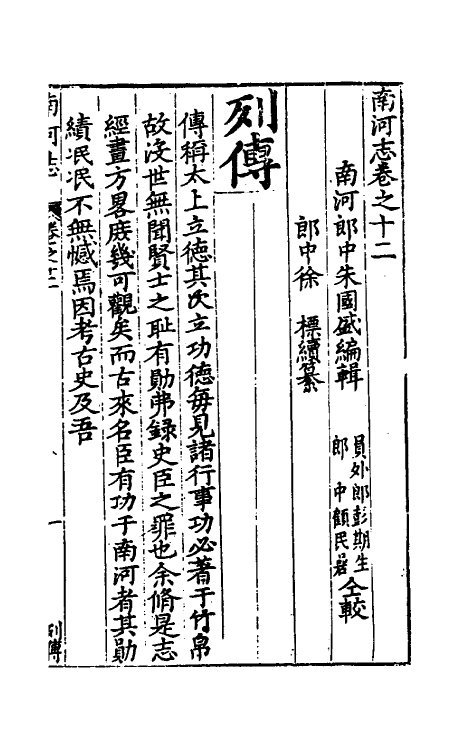 南河志卷之十二
南河郎中朱國盛編輯
員外郎彭期生
郎中顧民碞
仝較
郎中徐 標續纂
列傳
傳稱太上立德其次立功德每見諸行事功必著于竹帛
故沒世無聞賢士之恥有勛弗錄史臣之罪也余脩是志
經畫方畧庶幾可觀矣而古來名臣有功于南河者其勛
績泯泯不無憾焉因考古史及吾
南河志 卷之十二 一 列傳